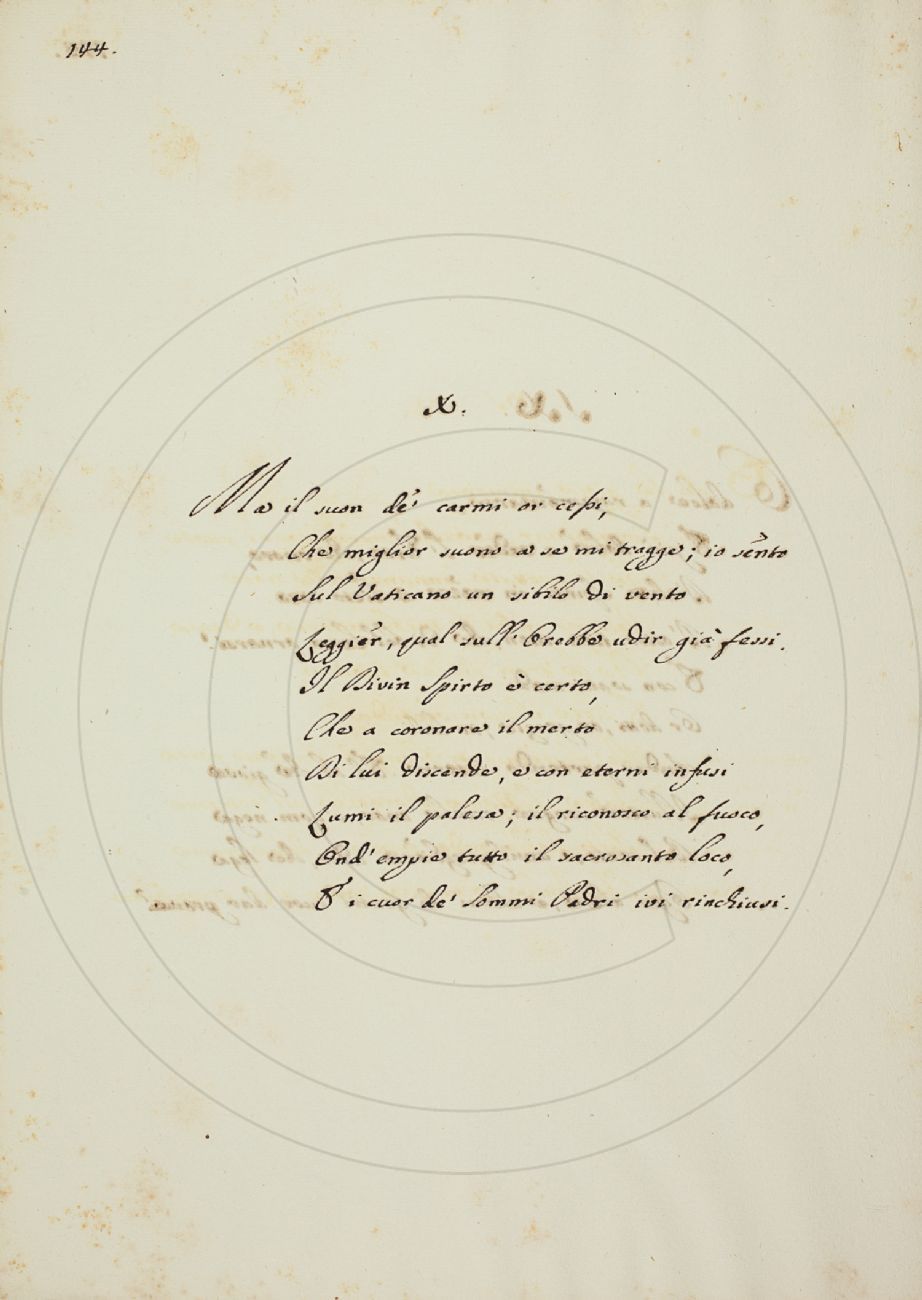 144.
X.
Ma il suon de' carmi or cessi,
Che miglior suono a se mi tragge; io sento
Sul Vaticano un sibilo di vento.
Leggier, qual sull' Orebbe udir già fessi.
Il Divin Spirto è certo,
Che a coronare il merto
Di lui discende, e con eterni infusi
Lumi il palesa; il riconosco al fuoco,
Ond' empie tutto il sacrosanto loco,
E i cuor de' Sommi Padri ivi rinchiusi.